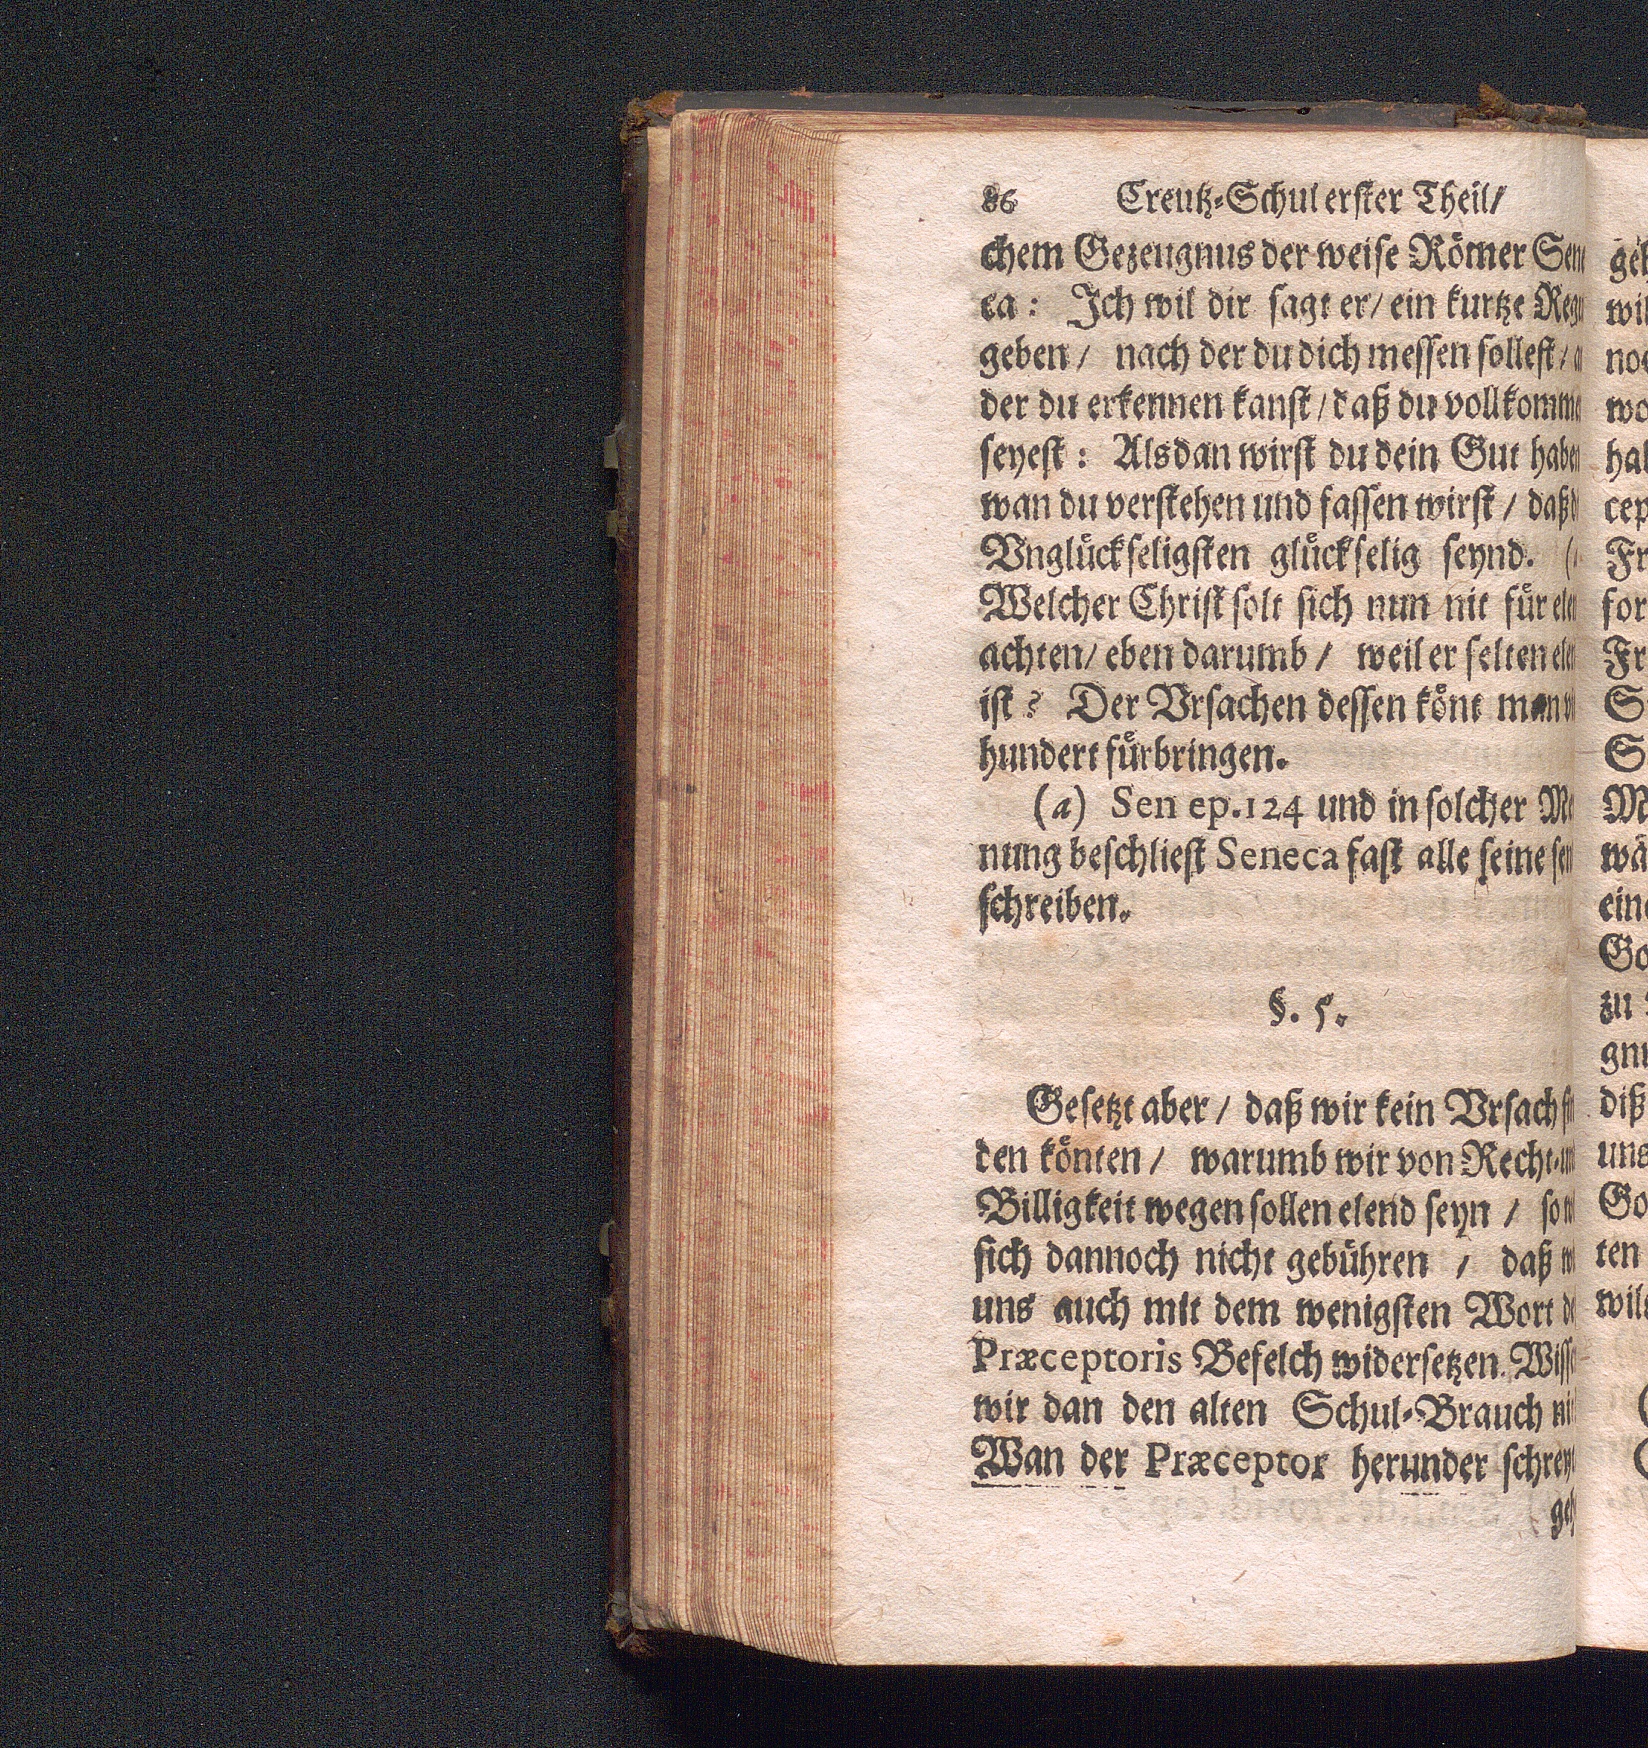 86 Creutz-Schul erster Theil/
chem Gezeugnus der weise Römer Sene
ca: Ich wil dir sagt er/ ein kurtze Regu
geben/ nach der du dich messen sollest/
der du erkennen kanst/ daß du vollkomme
seyest: Alsdan wirst du dein Gut haben
wan du verstehen und fassen wirst/ daß
Vnglückseligsten glückselig seynd.
Welcher Christ solt sich nun nit für
achten/ eben darumb/ weil er selten
ist? Der Vrsachen dessen könt man
hundert fürbringen.
(a) Sen ep. 124 und in solcher
nung beschliest Seneca fast alle seine
schreiben.
§. 5.
Gesetzt aber/ daß wir kein Vrsach
den könten/ warumb wir von Recht-
Billigkeit wegen sollen elend seyn/ so
sich dannoch nicht gebühren/ daß
uns auch mit dem wenigsten Wort
Præceptoris Befelch widersetzen. Wisse
wir dan den alten Schul-Brauch
Wan der Præceptor herunder schreyt
geh
geb
wil
noc
wo
hal
cep
Fr
for
Fr
S
S
M
wä
eine
Go
zu
gnu
diß
uns
Go
ten
wil